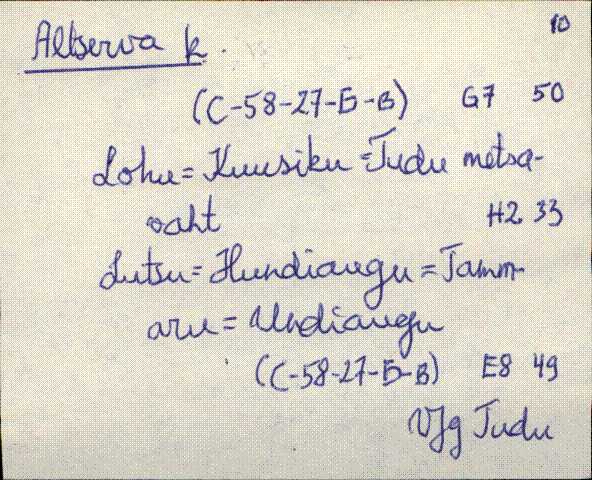 10
Altserva k.
(C-58-27-Б-В) G7 50
Lohu = Kuusiku = Tudu metsa-
vaht H2 33
Lutsu = Hundiaugu = Tamm-
aru = Undiaugu
(C-58-27-Б-В) E8 49
VJg Tudu